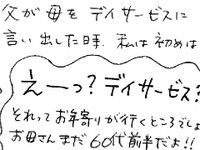 父が母をデイサービスに
言い出した時、私は初めは
えーっ?デイサービス?
それってお年寄りが行くところでしょ
お母さんまだ60代前半だよ!!